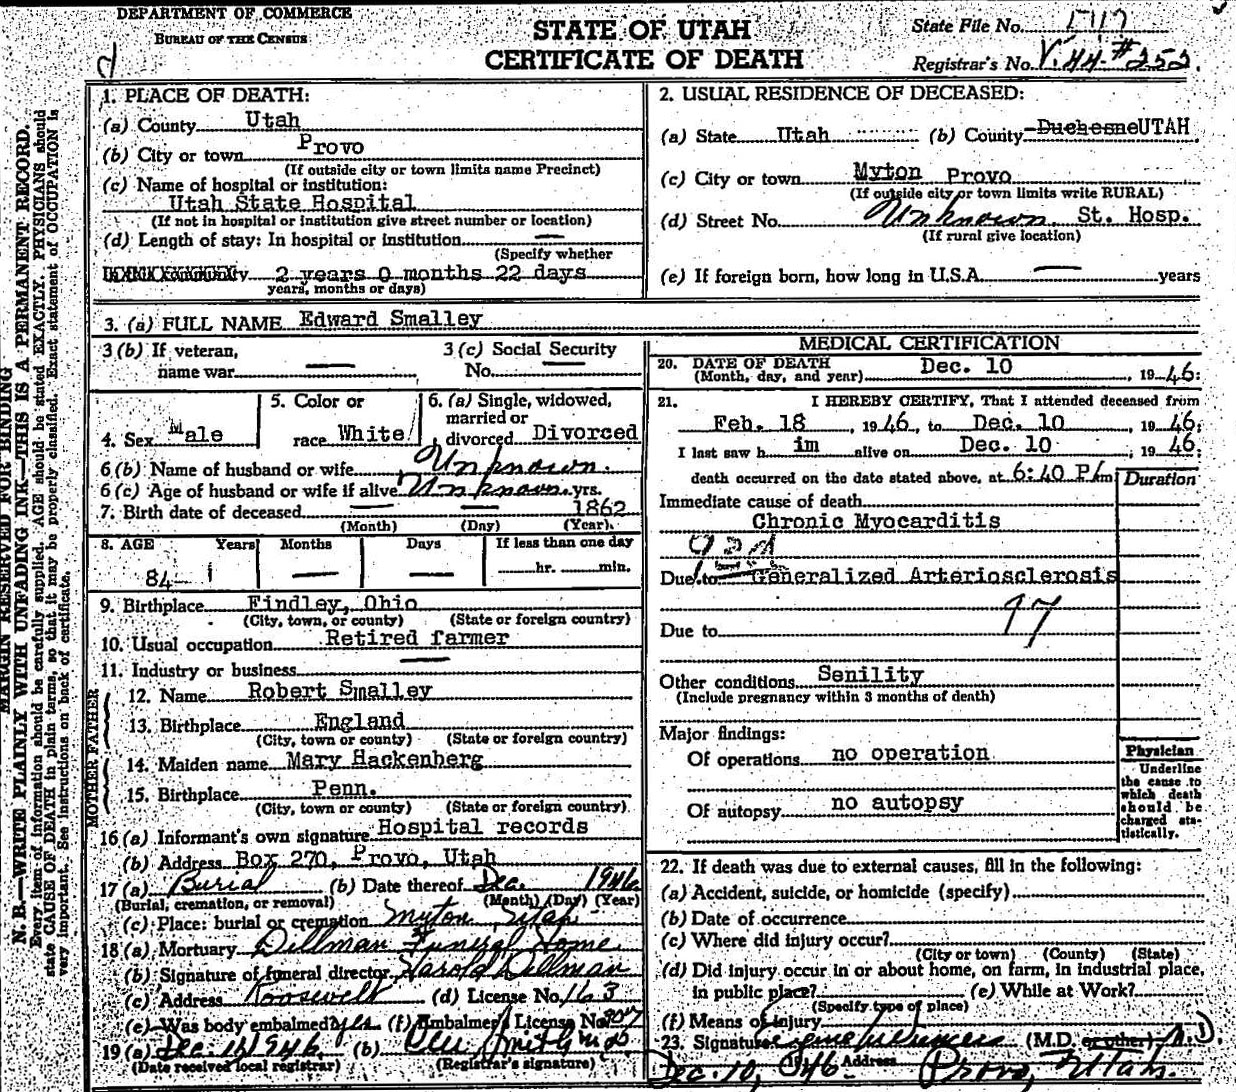 DEPARTMENT OF COMMERCE
BUREAU OF THE CENSUS
STATE OF UTAH
CERTIFICATE OF DEATH
State File No.
Registrar's No. V.44-#252.
MARGIN RESERVED FOR BINDING
N. B.—WRITE PLAINLY WITH UNFADING INK—THIS IS A PERMANENT RECORD.
Every item of information should be carefully supplied. AGE should be stated EXACTLY. PHYSICIANS should
state CAUSE OF DEATH in plain terms, so that it may be properly classified. Exact statement of OCCUPATION is
very important. See instructions on back of certificate.
1. PLACE OF DEATH:
(a) County Utah
(b) City or town Provo
(If outside city or town limits name Precinct)
(c) Name of hospital or institution:
Utah State Hospital
(If not in hospital or institution give street number or location)
(d) Length of stay: In hospital or institution —
(Specify whether
community 2 years 0 months 22 days
years, months or days)
2. USUAL RESIDENCE OF DECEASED:
(a) State Utah (b) County Duchesne UTAH
(c) City or town Myton Provo
(If outside city or town limits write RURAL)
(d) Street No. Unknown St. Hosp.
(If rural give location)
(e) If foreign born, how long in U.S.A. — years
3. (a) FULL NAME Edward Smalley
3 (b) If veteran, name war —
3 (c) Social Security No. —
4. Sex Male
5. Color or race White
6. (a) Single, widowed, married or divorced Divorced
6 (b) Name of husband or wife Unknown.
6 (c) Age of husband or wife if alive Unknown yrs.
7. Birth date of deceased — — 1862
(Month) (Day) (Year)
8. AGE Years Months Days If less than one day
84 — — hr. min.
9. Birthplace Findley, Ohio
(City, town, or county) (State or foreign country)
10. Usual occupation Retired farmer
11. Industry or business —
FATHER
12. Name Robert Smalley
13. Birthplace England
(City, town or county) (State or foreign country)
MOTHER
14. Maiden name Mary Hackenberg
15. Birthplace Penn.
(City, town or county) (State or foreign country)
16 (a) Informant's own signature Hospital records
(b) Address Box 270, Provo, Utah
17 (a) Burial (b) Date thereof Dec. 1946
(Burial, cremation, or removal) (Month) (Day) (Year)
(c) Place: burial or cremation Myton, Utah
18 (a) Mortuary Dillman Funeral Home
(b) Signature of funeral director Harold Dillman
(c) Address Roosevelt (d) License No. 163
(e) Was body embalmed? yes (f) Embalmer's License No.
19 (a) Dec. 1946. (b)
(Date received local registrar) (Registrar's signature)
MEDICAL CERTIFICATION
20. DATE OF DEATH Dec. 10, 1946.
(Month, day, and year)
21. I HEREBY CERTIFY, That I attended deceased from
Feb. 18, 1946, to Dec. 10, 1946,
I last saw him alive on Dec. 10, 1946
death occurred on the date stated above, at 6:40 P.m. Duration
Immediate cause of death
Chronic Myocarditis
93d
Due to Generalized Arteriosclerosis
97
Due to
Other conditions Senility
(Include pregnancy within 3 months of death)
Major findings:
Of operations no operation
Of autopsy no autopsy
Physician
Underline
the cause to
which death
should be
charged sta-
tistically.
22. If death was due to external causes, fill in the following:
(a) Accident, suicide, or homicide (specify)
(b) Date of occurrence
(c) Where did injury occur?
(City or town) (County) (State)
(d) Did injury occur in or about home, on farm, in industrial place,
in public place? (e) While at Work?
(Specify type of place)
(f) Means of injury
23. Signature (M.D. or other) M.D.
Dec. 10, 1946. Address Provo, Utah.